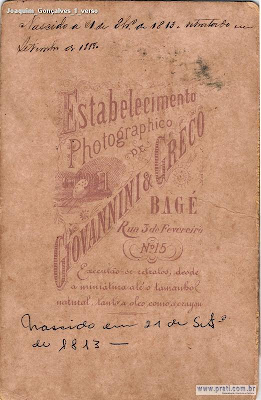 Joaquim Gonçalves I verso
Nascido a 21 de 7bro de 1813. retratado em
Setembro de 1885.
Estabelecimento
Photographico
DE
GIOVANNINI & GRECO
BAGÉ
Rua 3 de Fevereiro
Nº 15
Executão-se retratos, desde
a miniatura até o tamanho
natural, tanto a oleo como a crayon
Nascido em 21 de Setº
de 1813 —
www.prati.com.br